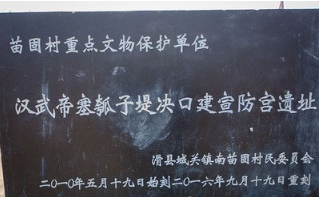 苗固村重点文物保护单位
汉武帝塞瓠子堤决口建宣防宫遗址
滑县城关镇南苗固村民委员会
二〇一〇年五月十九日始刻二〇一六年九月十九日重刻